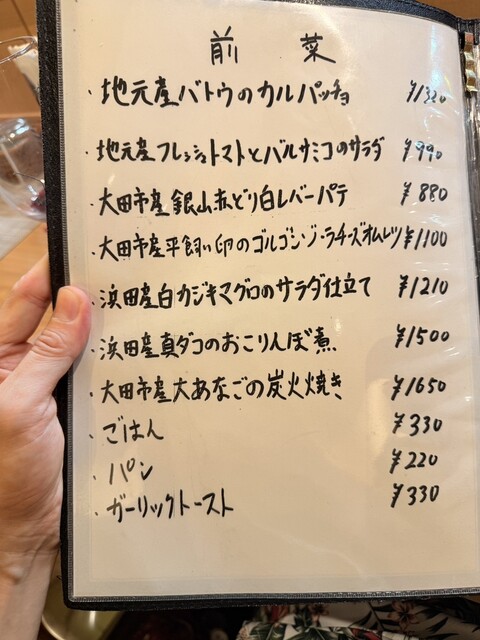 前菜
・地元産バトウのカルパッチョ ¥1320
・地元産フレッシュトマトとバルサミコのサラダ ¥990
・大田市産銀山赤どり白レバーパテ ¥880
・大田市産平飼い卵のゴルゴンゾーラチーズオムレツ ¥1100
・浜田産白カジキマグロのサラダ仕立て ¥1210
・浜田産真ダコのおこりんぼ煮 ¥1500
・大田市産大あなごの炭火焼き ¥1650
・ごはん ¥330
・パン ¥220
・ガーリックトースト ¥330